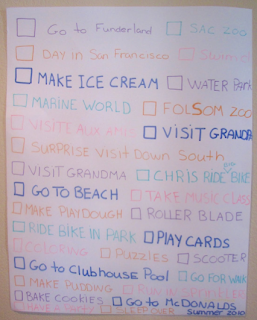 Go to Funderland SAC ZOO
DAY in San Francisco
MAKE ICE CREAM WATER Park
MARINE WORLD FOLSOM ZOO
VISITE AUX AMIS VISIT GRANDPA
SURPRISE VISIT DOWN South
VISIT GRANDMA CHRIS RIDE BIKE
GO TO BEACH TAKE MUSIC CLASS
MAKE PLAYDOUGH ROLLER BLADE
RIDE BIKE IN PARK PLAY CARDS
COLORING PUZZLES SCOOTER
Go to Clubhouse Pool GO FOR WALK
MAKE PUDDING RUN IN SPRINKLERS
BAKE COOKIES Go to McDONALDS
HAVE A PARTY SLEEP OVER Summer 2010